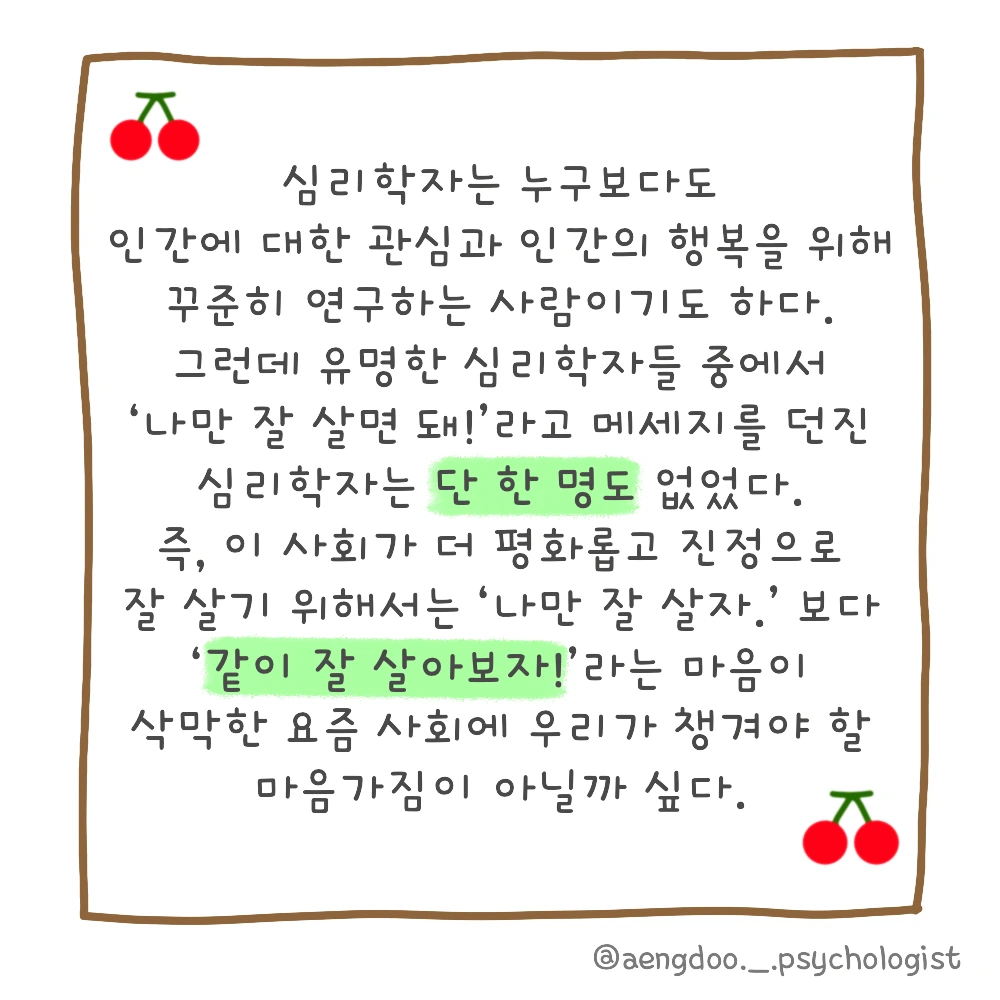 심리학자는 누구보다도
인간에 대한 관심과 인간의 행복을 위해
꾸준히 연구하는 사람이기도 하다.
그런데 유명한 심리학자들 중에서
‘나만 잘 살면 돼!’라고 메세지를 던진
심리학자는 단 한 명도 없었다.
즉, 이 사회가 더 평화롭고 진정으로
잘 살기 위해서는 ‘나만 잘 살자.’ 보다
‘같이 잘 살아보자!’라는 마음이
삭막한 요즘 사회에 우리가 챙겨야 할
마음가짐이 아닐까 싶다.
@aengdoo._.psychologist